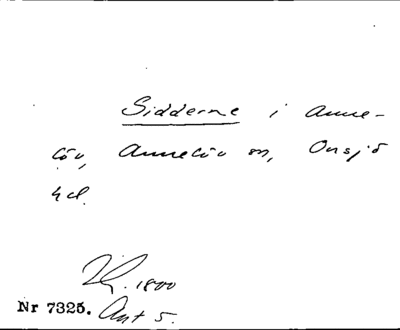 Sidderne i Anne-
löv, Annelöv sn, Onsjö
hd.
1800
Nr 7325. Ant 5.